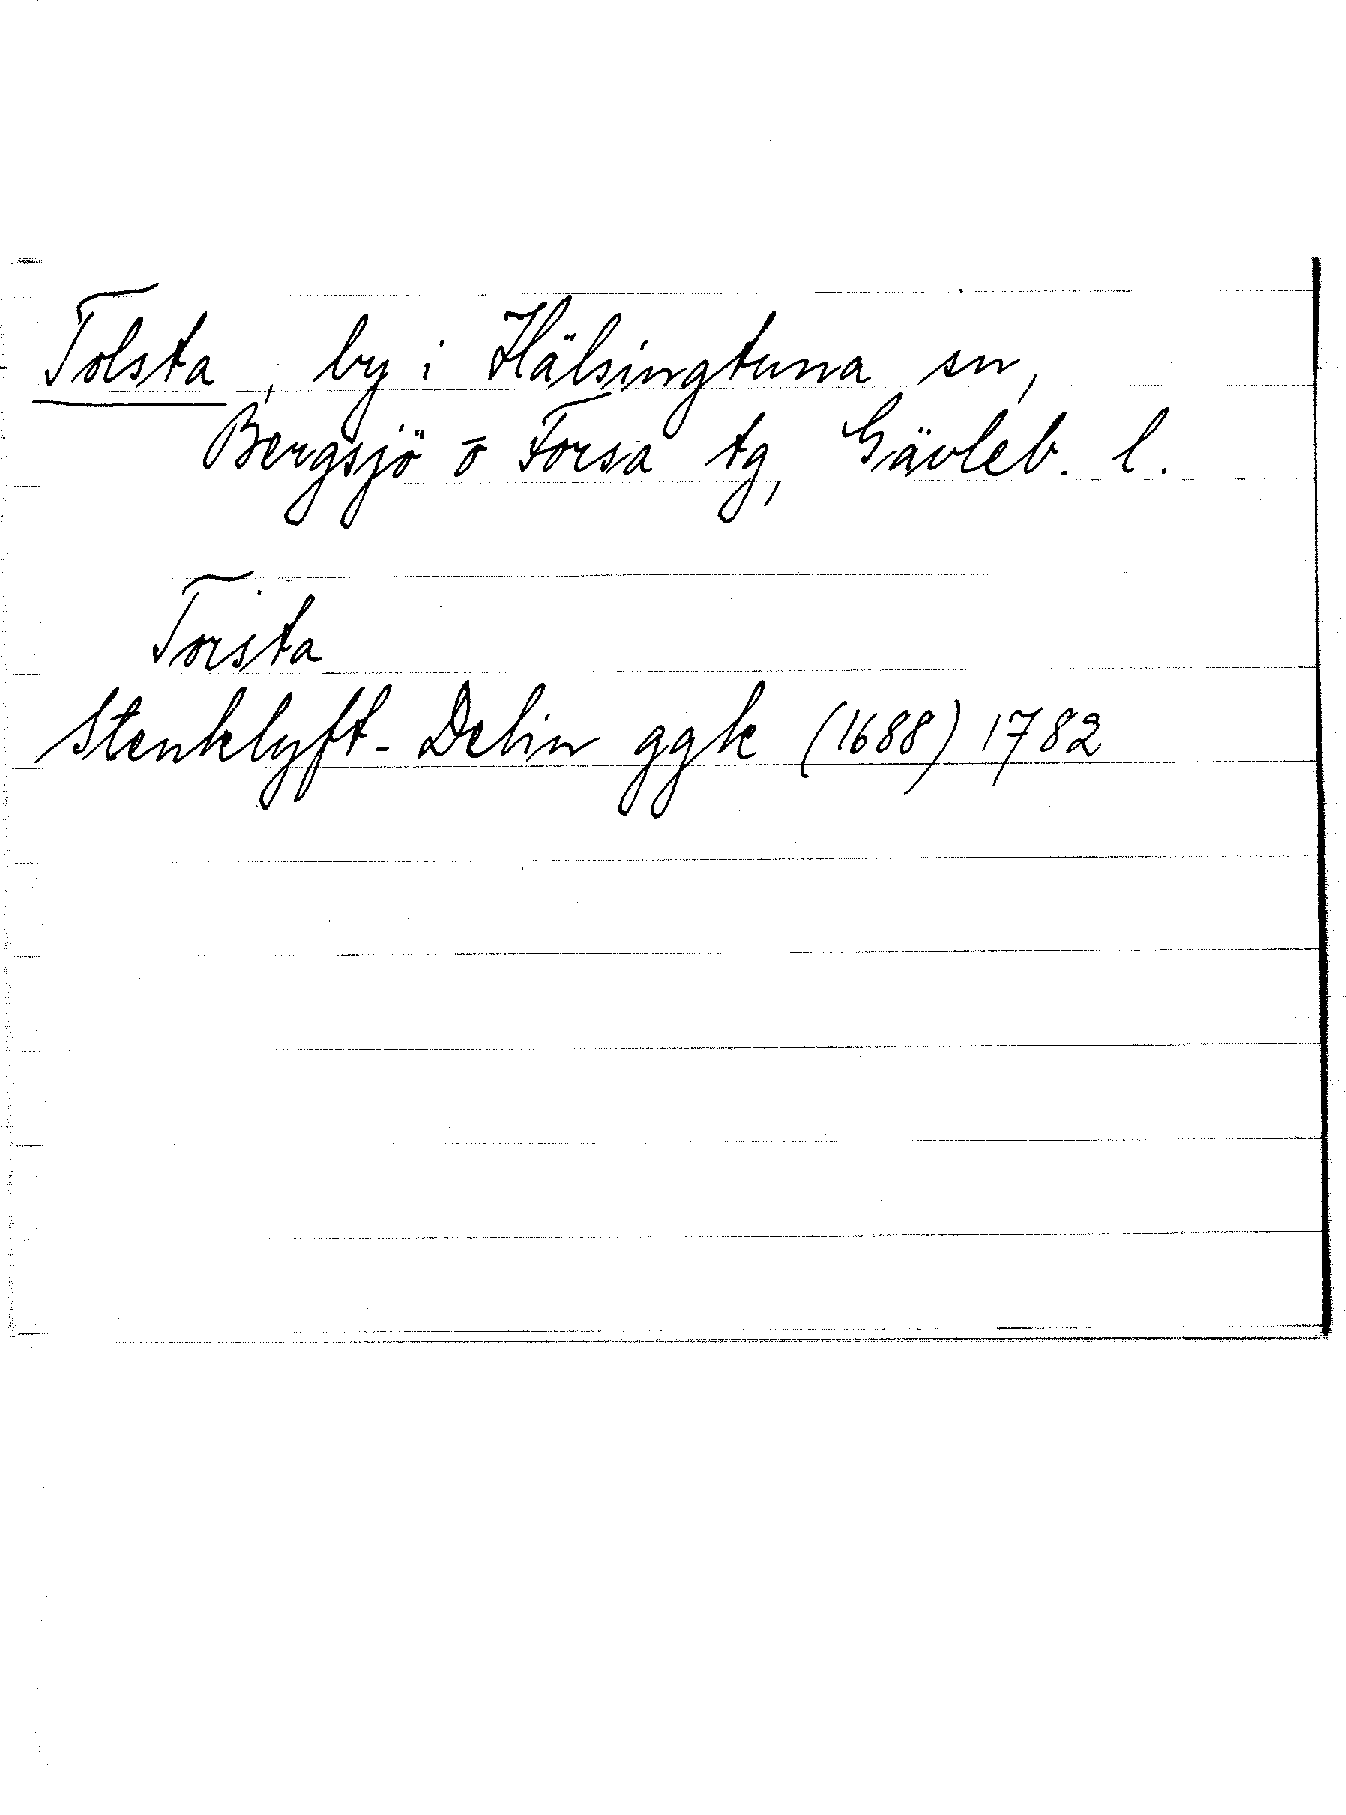 Tolsta, by i Hälsingtuna sn,
Bergsjö o Forsa tg, Gävleb. l.
Torsta
Stenklyft-Delin ggk (1688) 1782